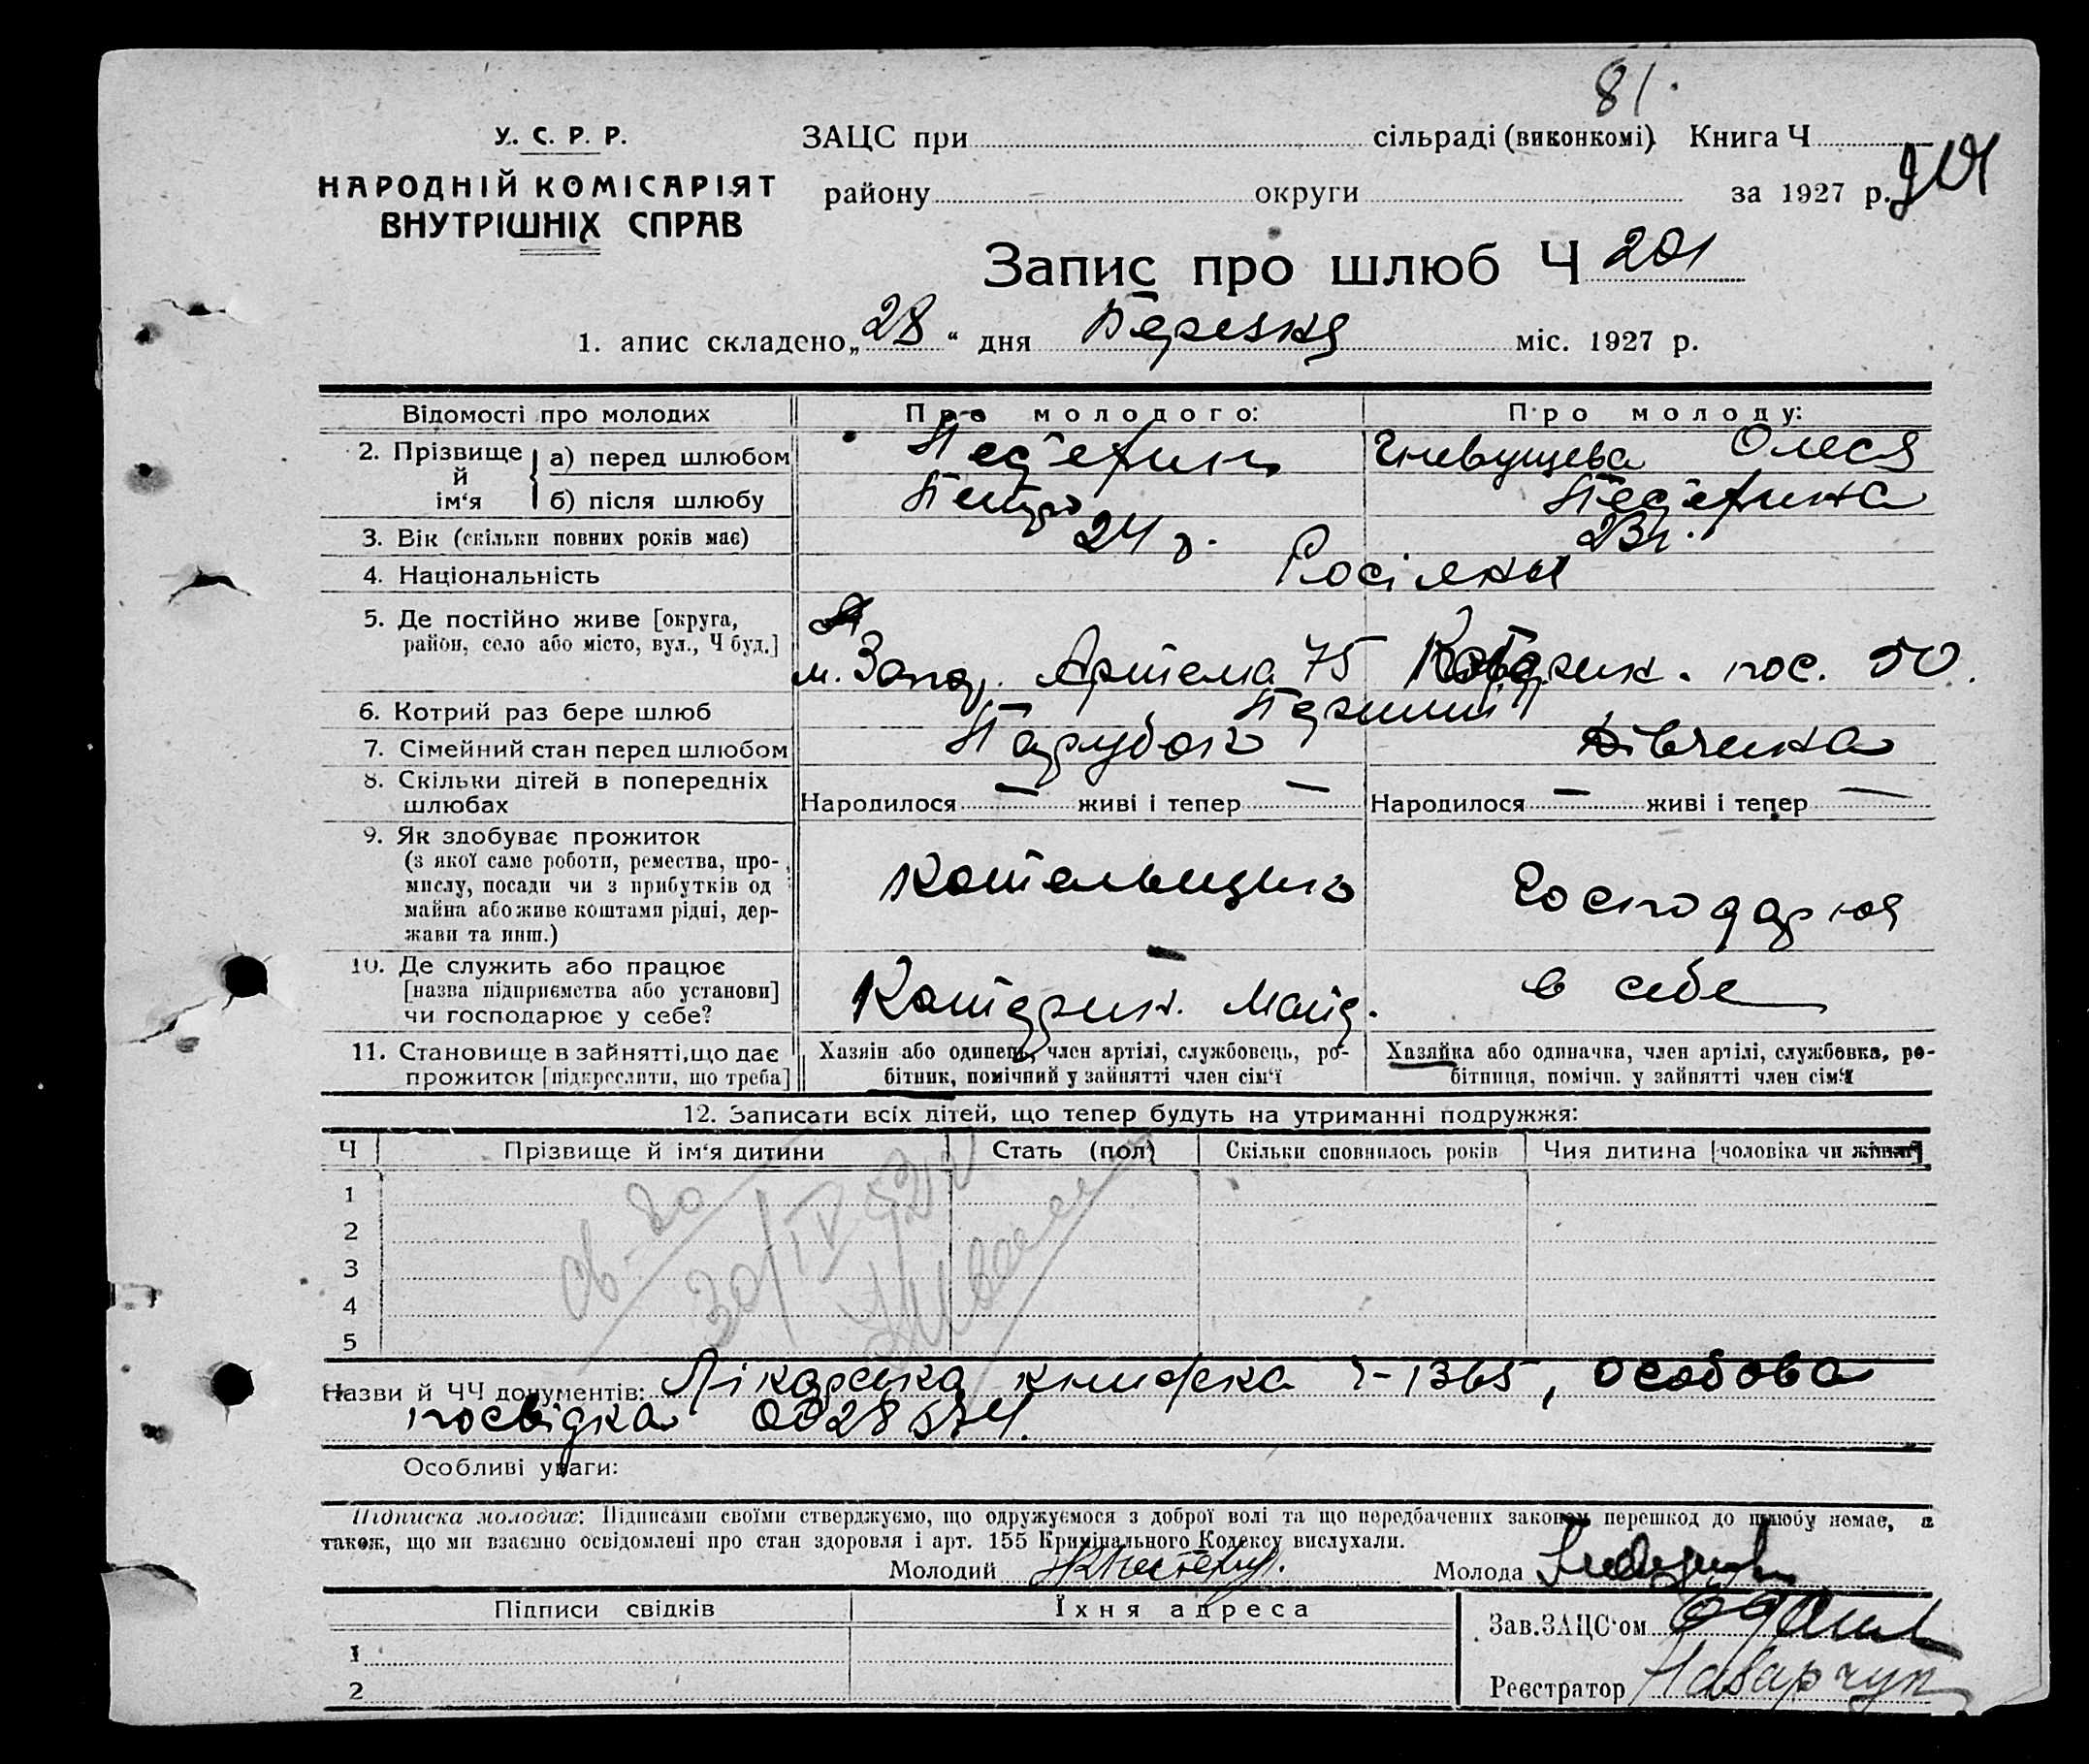 81.
У. С. Р. Р.
НАРОДНІЙ КОМІСАРІЯТ
ВНУТРІШНІХ СПРАВ
ЗАЦС при сільраді (виконкомі) Книга Ч
району округи за 1927 р.
Запис про шлюб Ч 201
1. апис складено „28“ дня Березня міс. 1927 р.
Відомості про молодих Про молодого: Про молоду:
2. Прізвище й ім‘я
а) перед шлюбом Гневущева Олеся
б) після шлюбу Петро
3. Вік (скільки повних років має) 24 р. 23 р.
4. Національність Росіяни
5. Де постійно живе [округа,
район, село або місто, вул., Ч буд.]
м. Запор. Артема 75 пос. 50.
6. Котрий раз бере шлюб Перший
7. Сімейний стан перед шлюбом Парубок Дівчина
8. Скільки дітей в попередніх
шлюбах
Народилося — живі і тепер — Народилося — живі і тепер —
9. Як здобуває прожиток
(з якої саме роботи, ремества, про-
мислу, посади чи з прибутків од
майна або живе коштами рідні, дер-
жави та инш.)
Котельщик Господарює
10. Де служить або працює
[назва підприємства або установи]
чи господарює у себе?
майс. в себе
11. Становище в зайнятті, що дає
прожиток [підкреслити, що треба]
Хазяін або одинець, член артілі, службовець, ро-
бітник, помічний у зайнятті член сім‘ї
Хазяйка або одиначка, член артілі, службовка, ро-
бітниця, помічн. у зайнятті член сім‘ї
12. Записати всіх дітей, що тепер будуть на утриманні подружжя:
Ч Прізвище й ім‘я дитини Стать (пол) Скільки сповнилось років Чия дитина [чоловіка чи жінки]
1
2
3
4
5
Назви й ЧЧ документів: Лікарська книжка Ч-1365, особова
посвідка
Особливі уваги:
Підписка молодих: Підписами своїми стверджуємо, що одружуємося з доброї волі та що передбачених законом перешкод до шлюбу немає, а
також, що ми взаємно освідомлені про стан здоровля і арт. 155 Кримінального Кодексу вислухали.
Молодий Молода
Підписи свідків Їхня адреса
1
2
Зав.ЗАЦС‘ом
Реєстратор